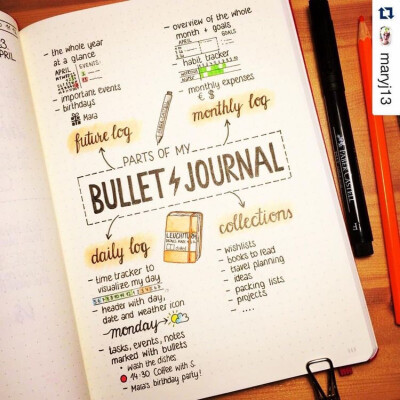 maryj13
- the whole year
at a glance
APRIL
EVENTS:
- important events
- birthdays
Maia
future log
- overview of the whole
month + goals
APRIL
GOALS
- habit tracker
- monthly expenses
€ $
monthly log
PARTS OF MY
BULLET JOURNAL
LEUCHTTURM
daily log
- time tracker to
visualize my day
- header with day,
date and weather icon
monday
- tasks, events, notes
marked with bullets
• wash the dishes
14:30 Coffee with S.
- Maia's birthday party!
collections
- wishlists
- books to read
- travel planning
- ideas
- packing lists
- projects
- ....
FABER-CASTELL